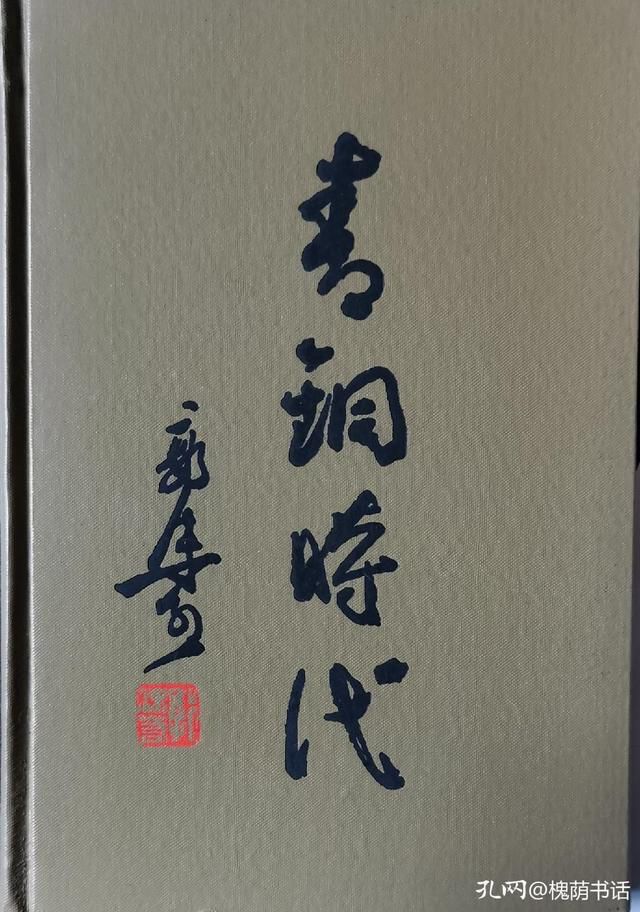 青銅時代
郭
孔网@槐荫书话